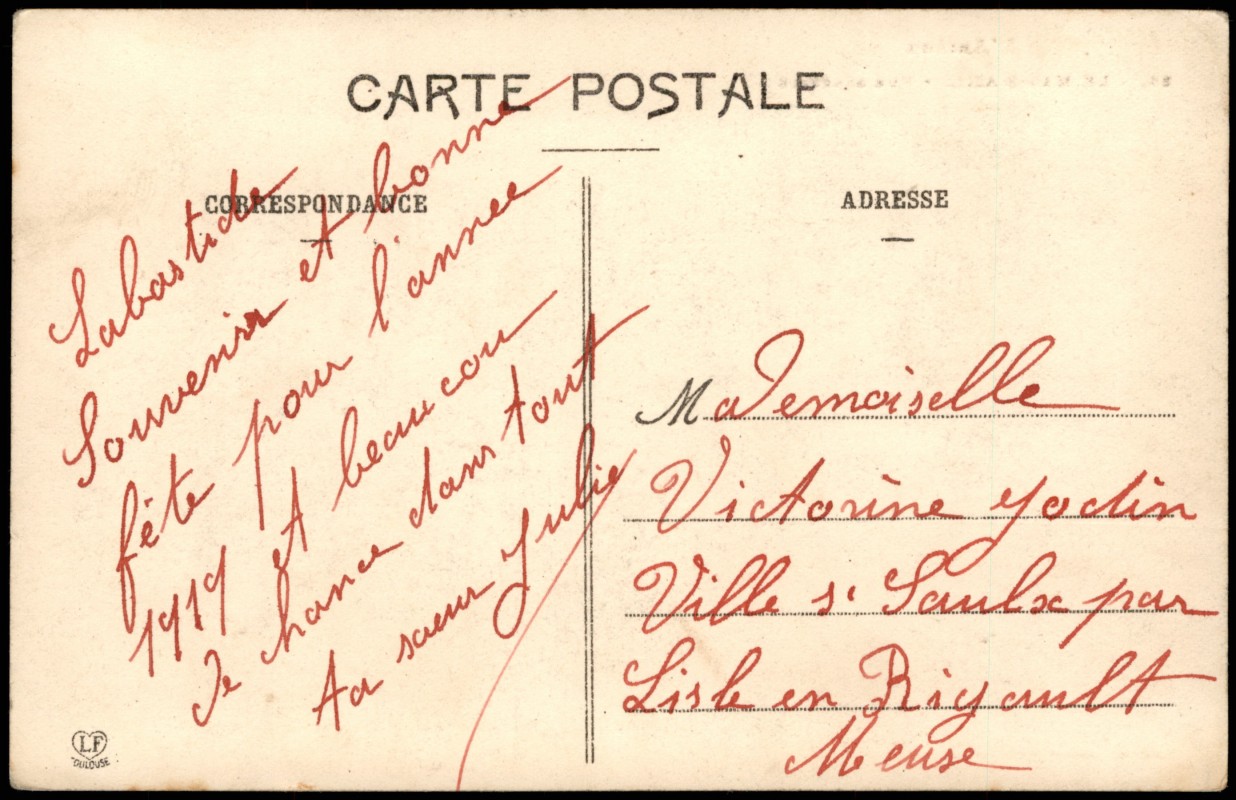 CARTE POSTALE
CORRESPONDANCE
Labastide
Souvenir et bonne
fête pour l'annee
1919 et beaucou
de chance dans tout
ta sœur Julie
ADRESSE
Mademoiselle
Victorine Jodin
Ville s. Saulx par
Lisle en Rigault
Meuse
LF
TOULOUSE